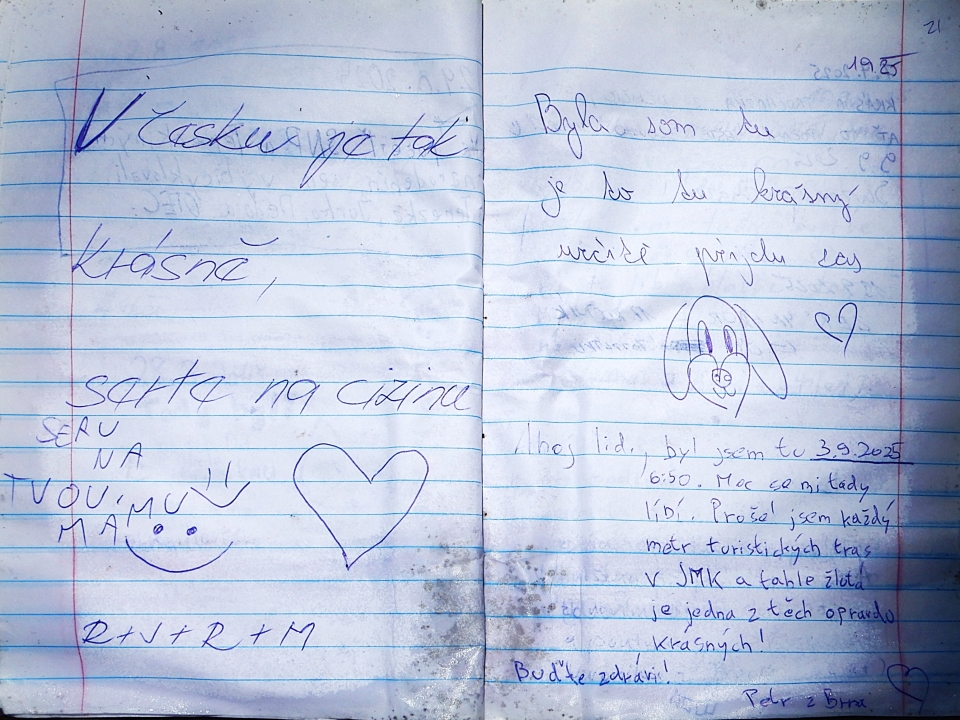 V Česku je tak
krásně,
serte na cizinu
SERU
NA
TVOU,
MÁMU
R+J+R+M
21
Byla som tu
je to tu krásný
určitě přijdu zas
Ahoj lidi, byl jsem tu 3.9.2025
6:50. Moc se mi tady
líbí. Prošel jsem každý
metr turistických tras
v JMK a tahle žlutá
je jedna z těch opravdu
krásných!
Buďte zdrávi!
Petr z Brna